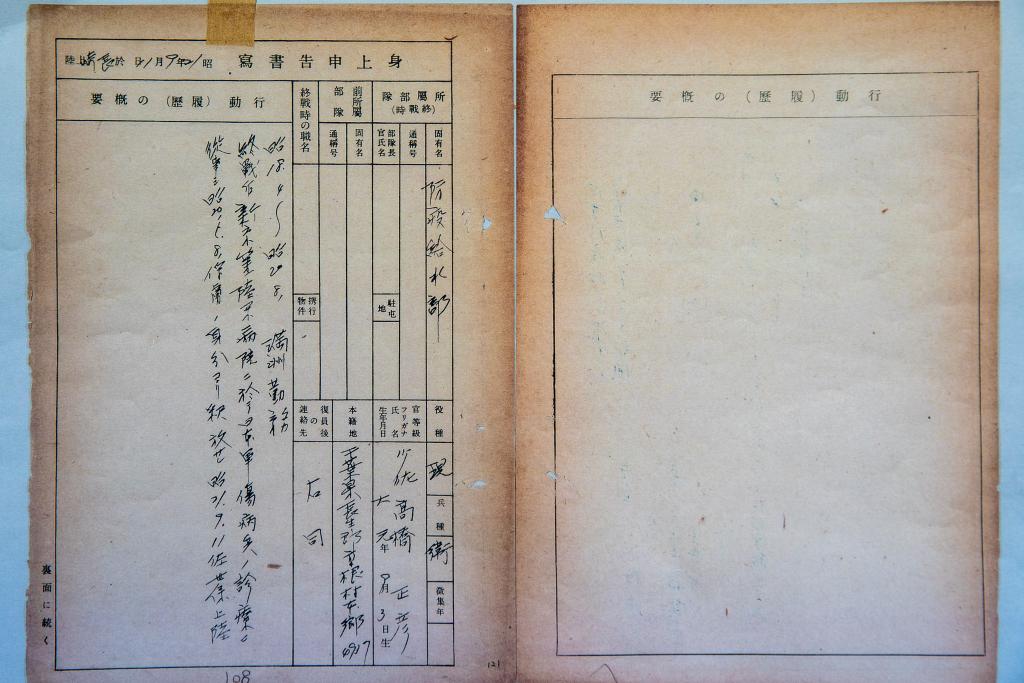 身上申告書寫 昭21年9月11日 於 陸
所屬部隊(終戰時)
固有名 防疫給水部
通稱号
部隊長官氏名
駐屯地
前所屬部隊
固有名
通稱号
終戰時の職名
携行物件
役種 現
兵種 衛
徴集年
官等級 少佐
フリガナ氏名 高橋 正彦
生年月日 大元年 9月3日生
本籍地 千葉県長生郡 村本郷
復員後の連絡先 右司
行動(履歴)の概要
昭18.4〜昭20.8, 満洲勤務
終戰后 陸軍病院ニ於テ日本軍傷病兵ノ診療ニ
従事シ昭 俘虜ノ身分ヨリ釈放セ 昭21.9.11佐世保上陸
裏面に続く
121
108
行動(履歴)の概要